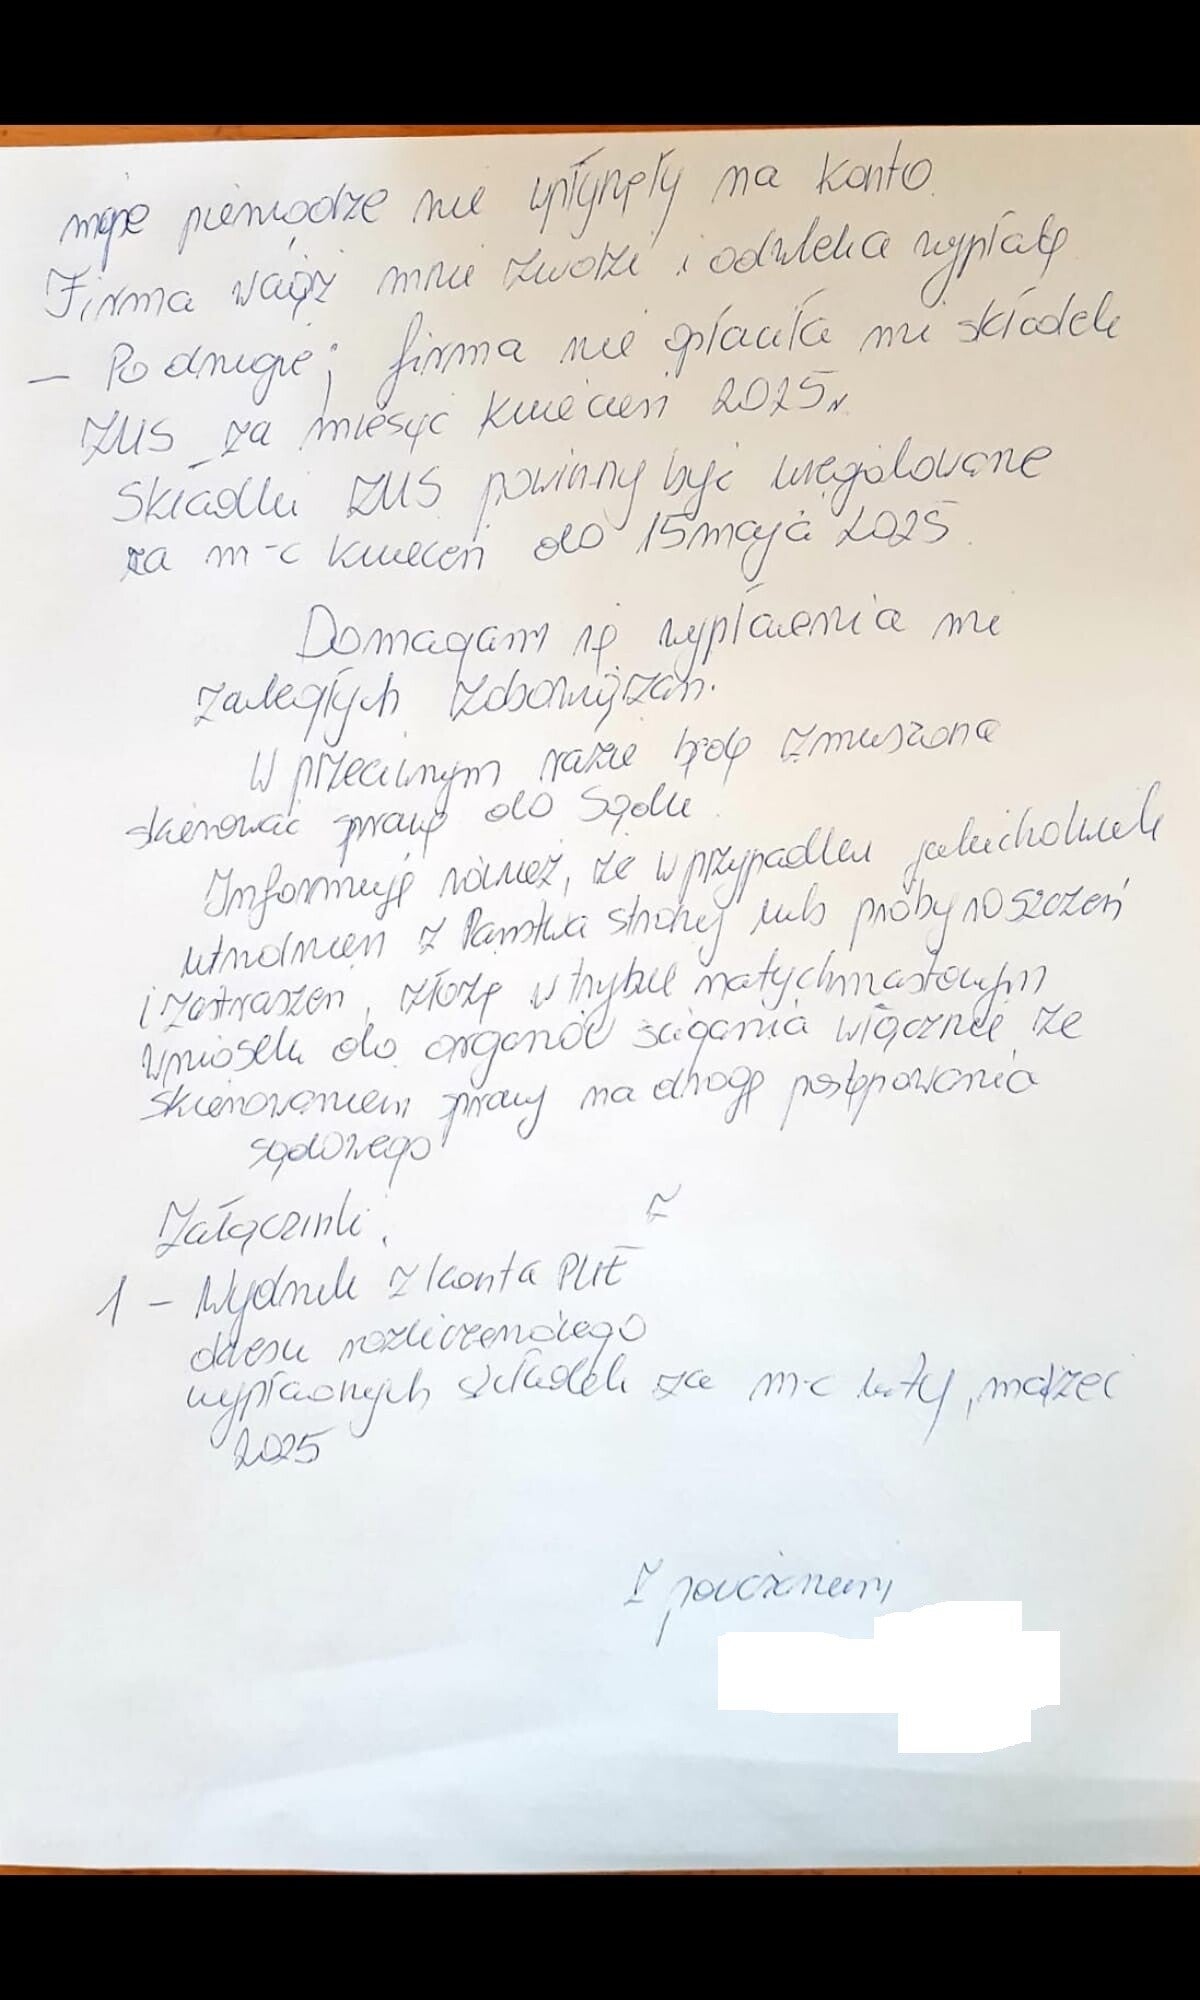 moje pieniądze nie wpłynęły na konto.
Firma wciąż mnie zwodzi i odwleka wypłatę
– Po drugie; firma nie opłaciła mi składek
ZUS za miesiąc kwiecień 2025r.
Składki ZUS powinny być uregulowane
za m-c kwiecień do 15 maja 2025.
Domagam się wypłacenia mi
zaległych zobowiązań.
W przeciwnym razie będę zmuszona
skierować sprawę do Sądu.
Informuję również, że w przypadku jakichkolwiek
utrudnień z Państwa strony lub próby roszczeń
i zastraszeń, złożę w trybie natychmiastowym
wniosek do organów ścigania włącznie ze
skierowaniem sprawy na drogę postępowania
sądowego
Załączniki,
Z
1 – Wydruk z konta PUE
okresu rozliczeniowego
wypłaconych składek za m-c luty, marzec
2025
Z poważaniem